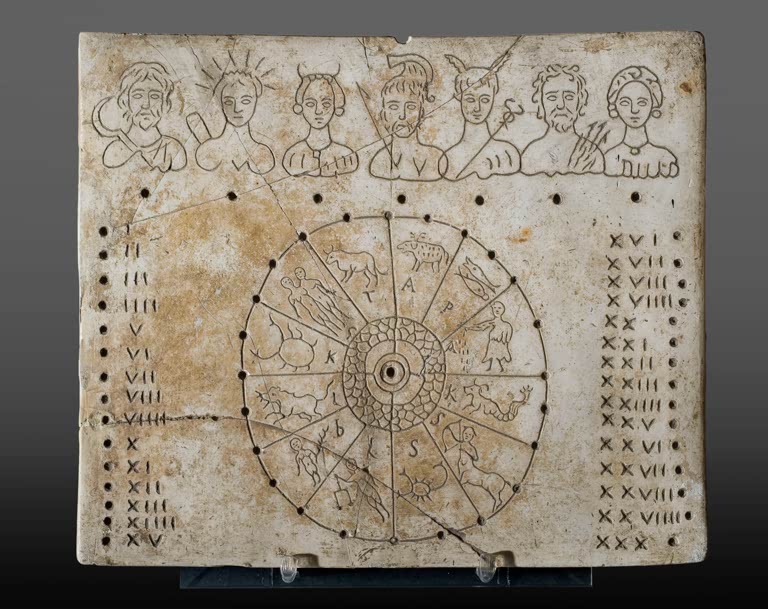 I
II
III
IIII
V
VI
VII
VIII
VIIII
X
XI
XII
XIII
XIIII
XV
T
A
P
K
K
b
S
S
XVI
XVII
XVIII
XVIIII
XX
XXI
XXII
XXIII
XXIIII
XXV
XXVI
XXVII
XXVIII
XXVIIII
XXX